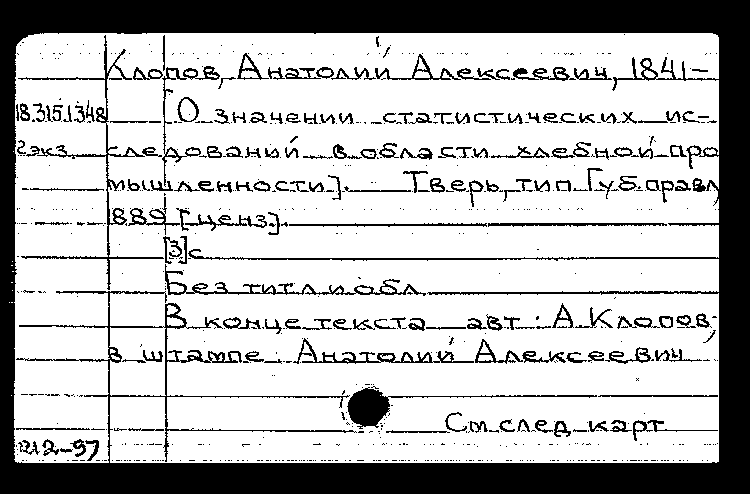 Клопов, Анатолий Алексеевич, 1841-
18.315.1.348 [О значении статистических ис-
2 экз. следований в области хлебной про
мышленности]. Тверь, тип. Губ. правл,
1889 [ценз.].
[3] с
Без титл. и обл.
В конце текста авт: А. Клопов;
в штампе: Анатолий Алексеевич
См. след. карт
212-97